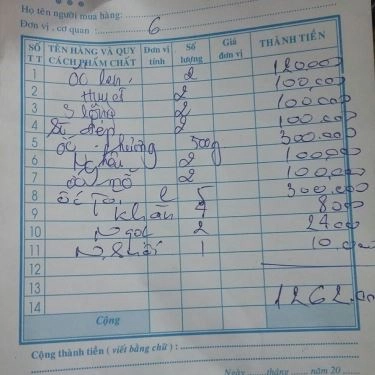 Họ tên người mua hàng:
Đơn vị, cơ quan: 6
SỐ TT TÊN HÀNG VÀ QUY CÁCH PHẨM CHẤT Đơn vị tính Số lượng Giá đơn vị THÀNH TIỀN
1 ốc len 2 120.000
2 Huyết 2 100.000
3 Sò lông 2 100.000
4 Sò điệp 2 100.000
5 ốc hương 500g 300.000
6 Nghêu 2 100.000
7 ốc mỡ 2 100.000
8 ốc 5 300.000
9 Khăn 4 8.00
10 Ngọt 2 24.00
11 N. Suối 1 10.00
12
13
14 1262.00
Cộng
Cộng thành tiền ( viết bằng chữ ) :
Ngày tháng năm 20